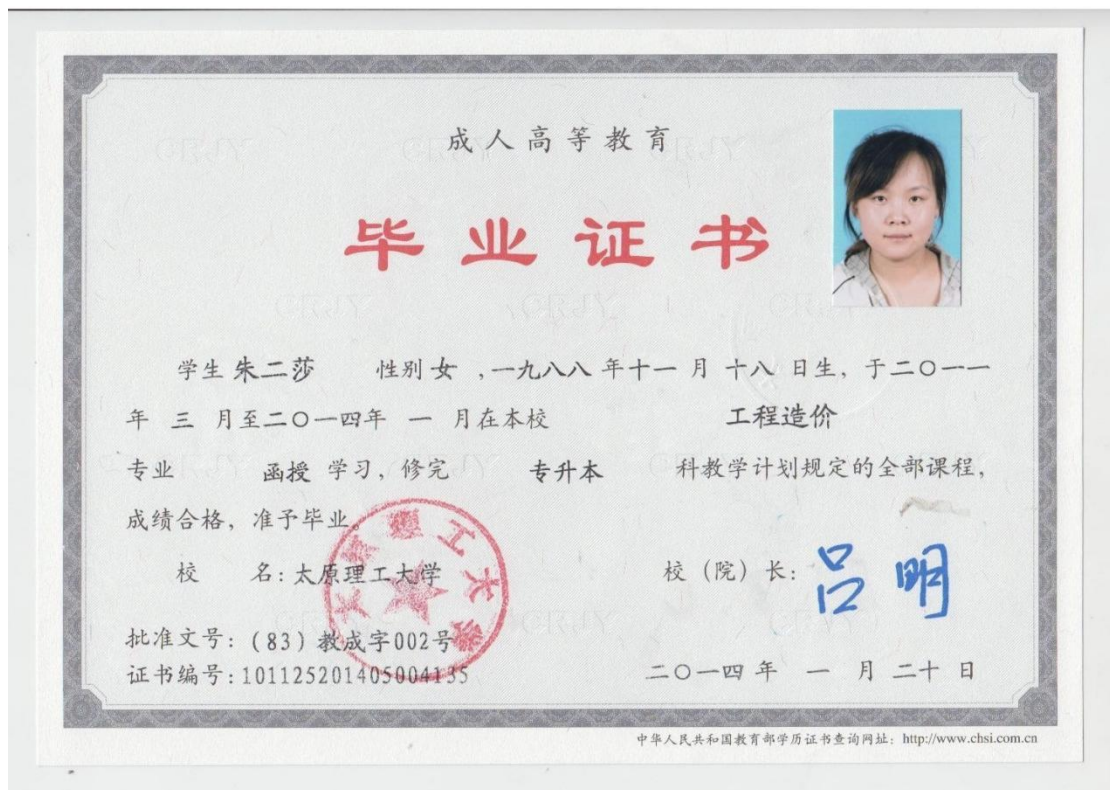 成人高等教育
毕业证书
学生 朱二莎 性别 女 ,一九八八 年十一 月 十八 日生, 于二〇一一
年 三 月至二〇一四年 一 月在本校 工程造价
专业 函授 学习, 修完 专升本 科教学计划规定的全部课程,
成绩合格, 准予毕业。
校 名: 太原理工大学 校 (院) 长: 吕明
批准文号: (83) 教成字002号
证书编号: 101125201405004135 二〇一四 年 一 月 二十 日
中华人民共和国教育部学历证书查询网址: http://www.chsi.com.cn